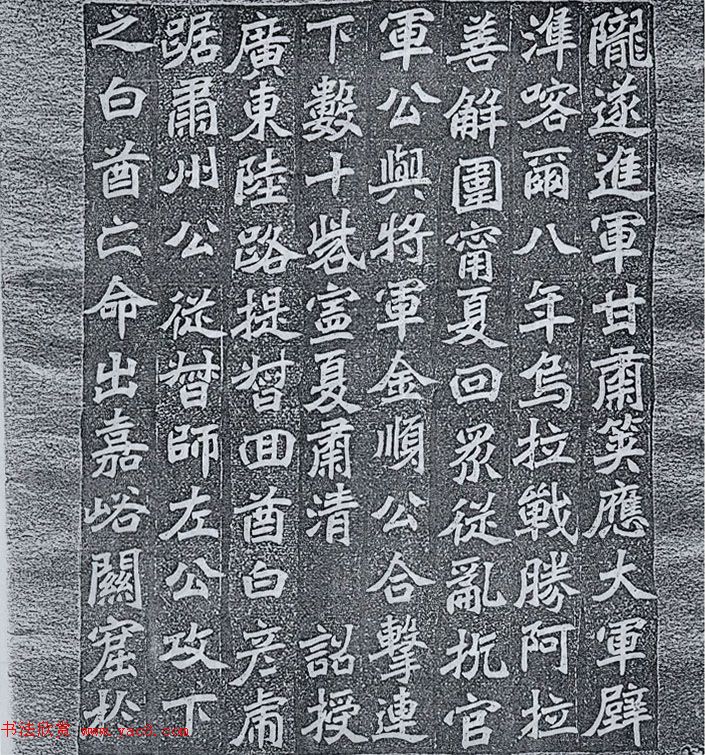 隴遂進軍甘肅筴應大軍壁
準喀爾八年烏拉戰勝阿拉
善解圍甯夏回眾從亂抗官
軍公與將軍金順公合擊連
下數十砦寍夏肅清　詔授
廣東陸路提督回酋白彥虎
踞肅州公從督師左公攻下
之白酋亡命出嘉峪關窟於
书法欣赏 www.yac8.com